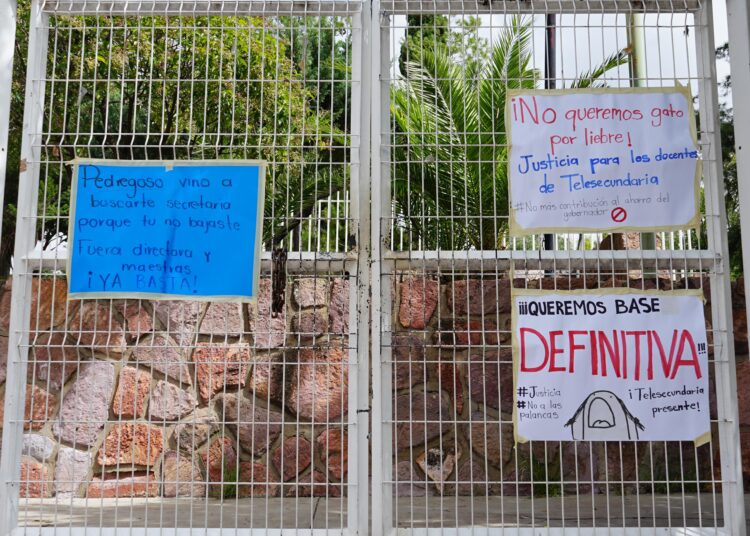 Pedregoso vino a
buscarte secretaria
porque tu no bajaste
Fuera directora y
maestras
¡YA BASTA!
¡No queremos gato
por liebre!
Justicia para los docentes
de Telesecundaria
#No más contribución al ahorro del
gobernador
¡¡¡QUEREMOS BASE
DEFINITIVA!!!
#Justicia
#No a las
palancas
¡Telesecundaria
presente!